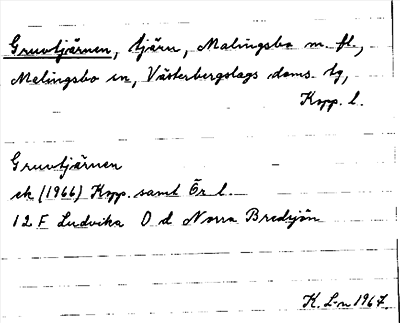 Gruvtjärnen, tjärn, Malingsbo m. fl.,
Malingsbo sn, Västerbergslags doms. tg,
Kopp. l.
Gruvtjärnen
ek (1966) Kopp. samt Ör l.
12 F Ludvika O d Norra Bredsjön
K. L-n 1967.